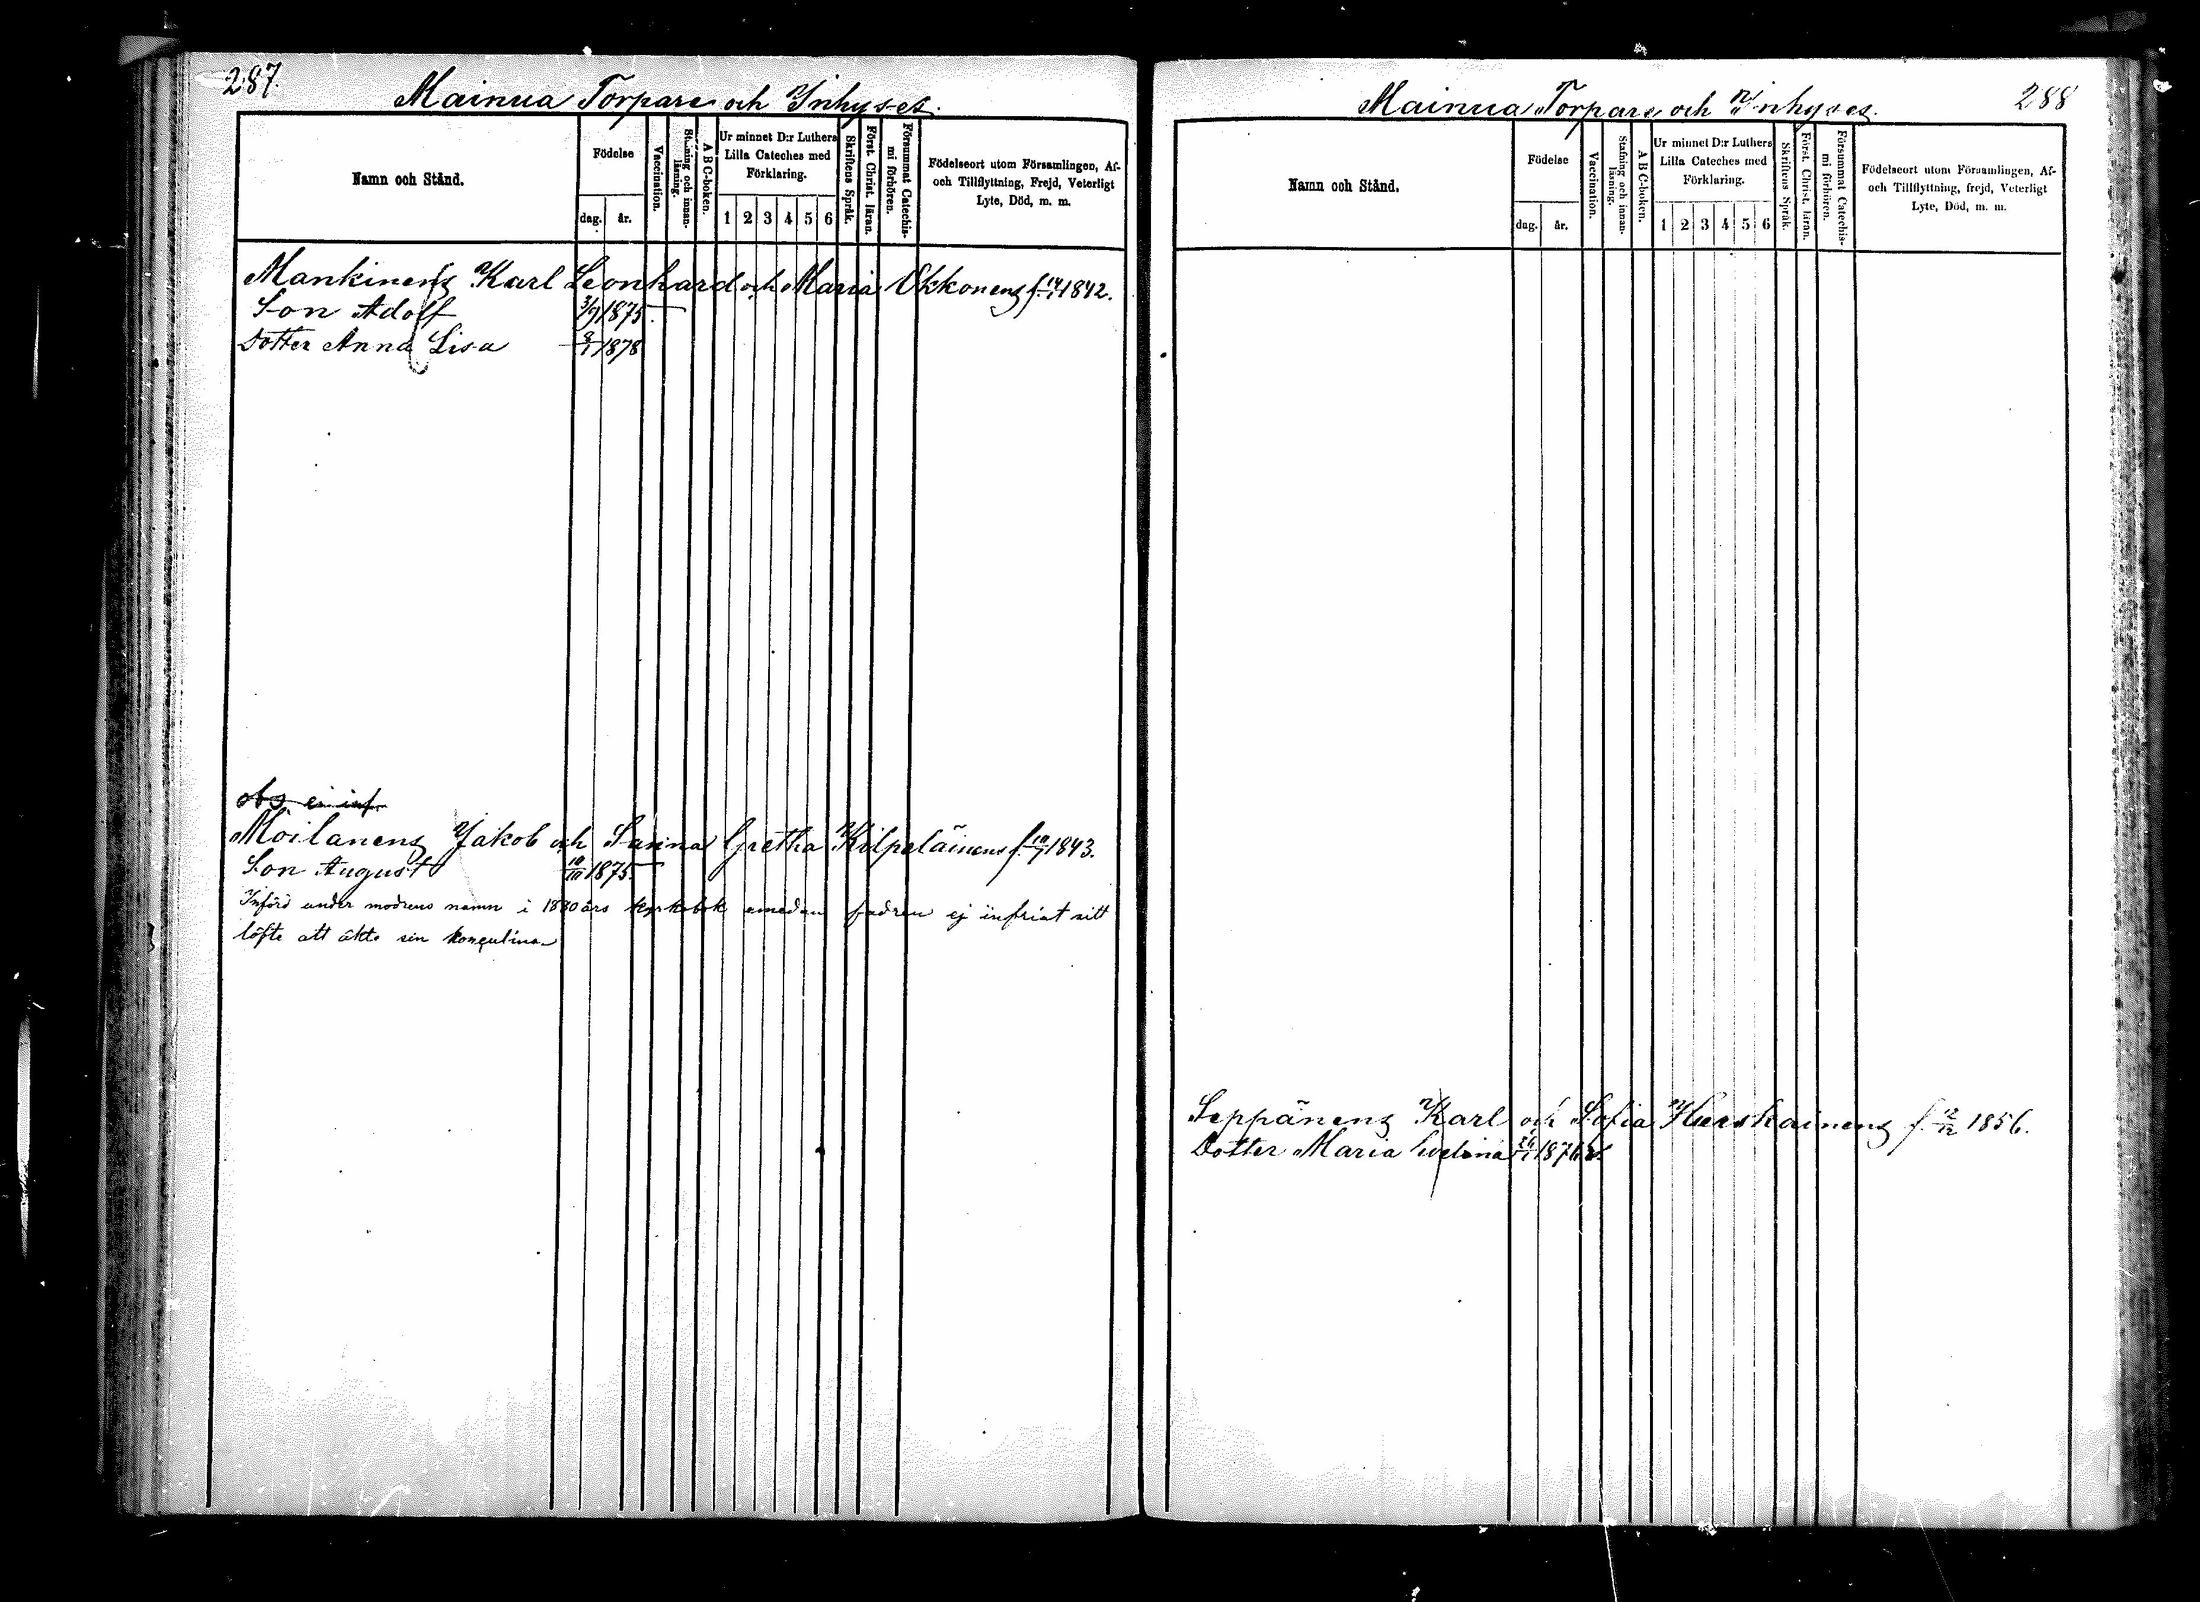 287.
Mainua Torpare och Inhyses.
Namn och Stånd.
Födelse
dag. år.
Vaccination.
Stafning och innanläsning.
A B C-boken.
Ur minnet D:r Luthers
Lilla Cateches med
Förklaring.
1 2 3 4 5 6
Skriftens Språk.
Först. Christ. läran.
Försummat Catechismi förhören.
Födelseort utom Församlingen, Af-
och Tillflyttning, Frejd, Veterligt
Lyte, Död, m. m.
Mankinens Karl Leonhard och Maria Okkonens f. 14/1 1842.
Son Adolf 3/9 1875.
Dotter Anna Lisa 8/1 1878
obs ei inf.
Moilanens Jakob och Sanna Gretha Kilpeläinens f. 10/7 1843.
Son August 10/10 1875.
Införd under modrens namn i 1880 års kyrkobok emedan fadren ej infriat sitt
löfte att äkta sin konqulina
Mainua Torpare och Inhyses.
288
Namn och Stånd.
Födelse
dag. år.
Vaccination.
Stafning och innanläsning.
A B C-boken.
Ur minnet D:r Luthers
Lilla Cateches med
Förklaring.
1 2 3 4 5 6
Skriftens Språk.
Först. Christ. läran.
Försummat Catechismi förhören.
Födelseort utom Församlingen, Af-
och Tillflyttning, frejd, Veterligt
Lyte, Död, m. m.
Seppänens Karl och Sofia Hurskainens f. 12/12 1856.
Dotter Maria Evelina 26/1 1876